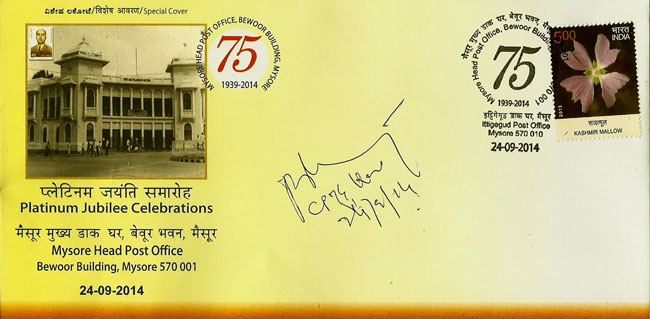 ವಿಶೇಷ ಲಕೋಟೆ/विशेष आवरण/Special Cover
MYSORE HEAD POST OFFICE, BEWOOR BUILDING, MYSORE
75
1939-2014
प्लेटिनम जयंति समारोह
Platinum Jubilee Celebrations
मैसूर मुख्य डाक घर, बेवूर भवन, मैसूर
Mysore Head Post Office
Bewoor Building, Mysore 570 001
24-09-2014
मैसूर मुख्य डाक घर, बेवूर भवन,
Mysore Head Post Office, Bewoor
570 001
75
1939-2014
इट्टिगेगूड डाक घर, मैसूर
Ittigegud Post Office
Mysore 570 010
24-09-2014
5.00
भारत
INDIA
राजामूल
KASHMIR MALLOW